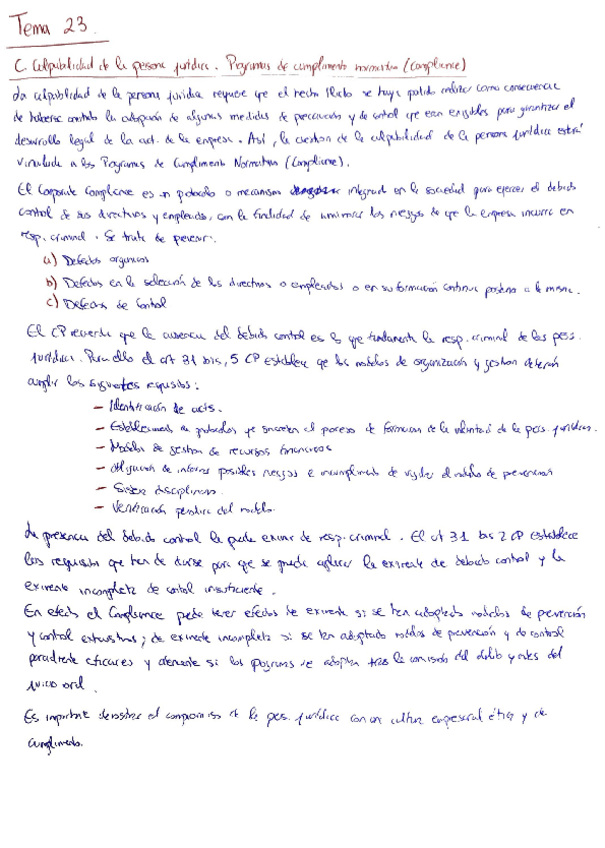 Tema 23.
C. Culpabilidad de la persona jurídica. Programas de cumplimiento normativo (Compliance)
La culpabilidad de la persona jurídica requiere que el hecho ilícito se haya podido realizar como consecuencia
de haberse omitido la adopción de algunas medidas de precaución y de control que eran exigibles para garantizar el
desarrollo legal de la act. de la empresa. Así, la cuestión de la culpabilidad de la persona jurídica estará
vinculada a los Programas de Cumplimiento Normativo (Compliance).
El Corporate Compliance es un protocolo o mecanismo integrado en la sociedad para ejercer el debido
control de sus directivos y empleados, con la finalidad de minimizar los riesgos de que la empresa incurra en
resp. criminal. Se trata de prevenir:
a) Defectos orgánicos
b) Defectos en la selección de los directivos o empleados o en su formación continua posterior a la misma.
c) Defectos de control
El CP recuerda que la ausencia del debido control es lo que fundamenta la resp. criminal de las pers.
jurídicas. Para ello el art 31 bis, 5 CP establece que los modelos de organización y gestión deberán
cumplir los siguientes requisitos:
- Identificación de acts.
- Establecimiento de protocolos que concreten el proceso de formación de la voluntad de la pers. jurídica.
- Modelos de gestión de recursos financieros
- Obligación de informar posibles riesgos e incumplimientos de vigilar el modelo de prevención
- Sistema disciplinario
- Verificación periódica del modelo.
La presencia del debido control le puede eximir de resp. criminal. El art 31 bis 2 CP establece
los requisitos que han de darse para que se pueda aplicar la eximente de debido control y la
eximente incompleta de control insuficiente.
En efecto el Compliance puede tener efectos de eximente si se han adoptado modelos de prevención
y control exhaustivos; de eximente incompleta si se han adoptado modelos de prevención y de control
parcialmente eficaces y atenuante si los programas se adoptan tras la comisión del delito y antes del
juicio oral.
Es importante demostrar el compromiso de la pers. jurídica con una cultura empresarial ética y de
cumplimiento.